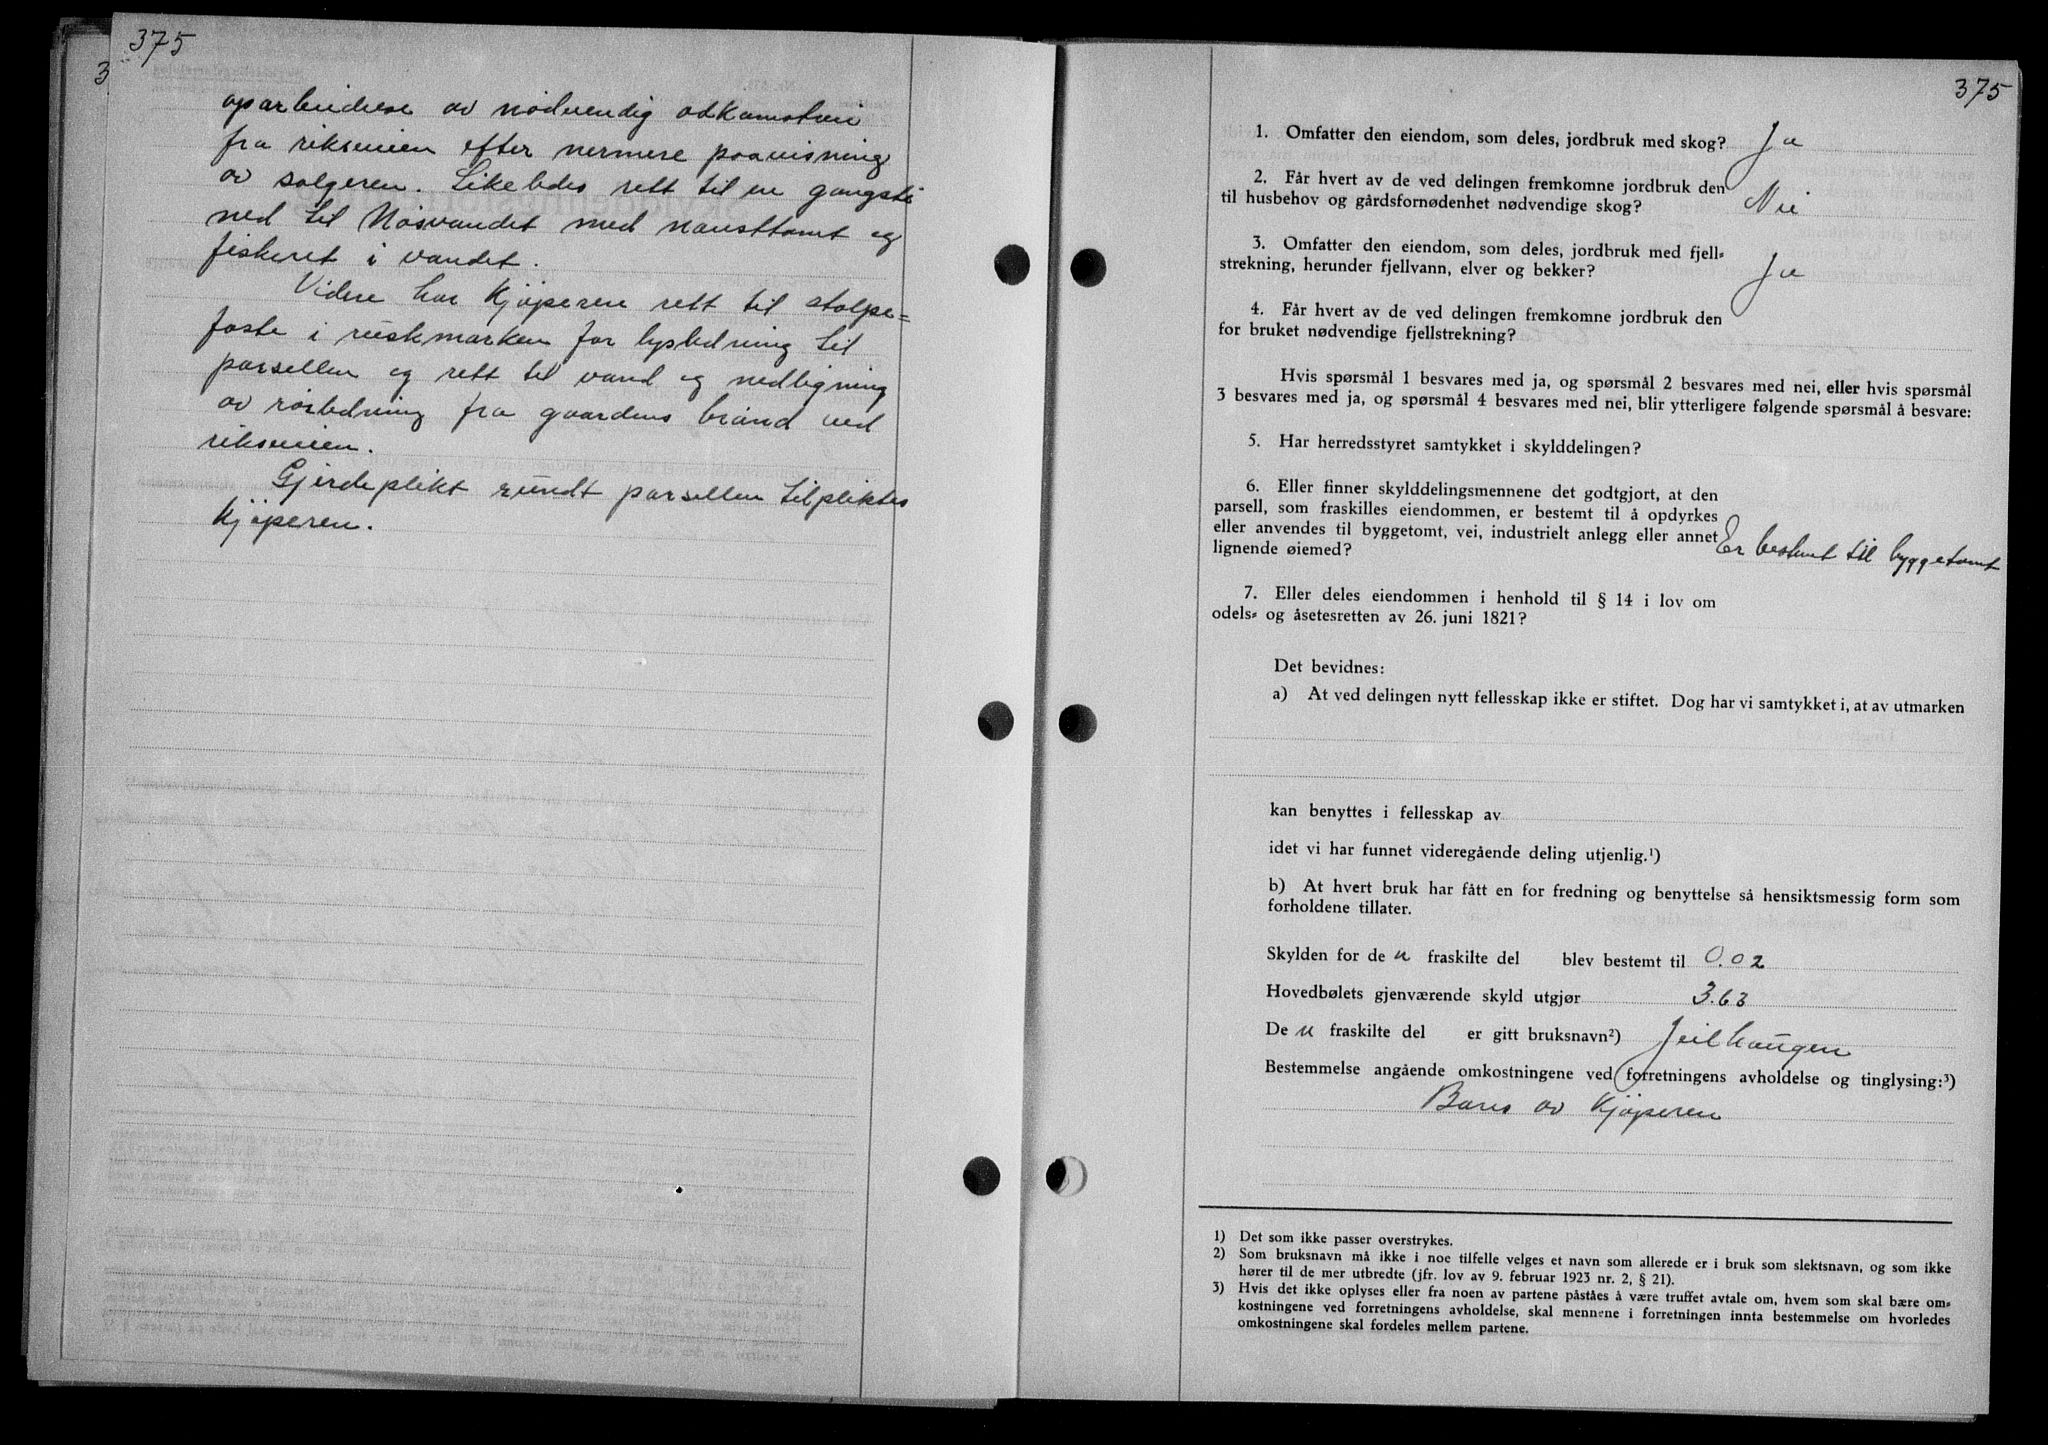 375
3
oparbeidese av nødvendig adkomstvei
fra riksveien efter nermere paavisning
av selgeren. Likeledes rett til en gangsti
ned til Nosvandet med nausttomt og
fiskeret i vandet.
Videre har Kjøperen rett til stolpe=
feste i ruskmarken for lysledning til
parsellen og rett til vand og nedligning
av rørledning fra gaardens brønd ved
riksveien.
Gjerdeplikt rundt parsellen tilpliktes
Kjøperen.
375
1. Omfatter den eiendom, som deles, jordbruk med skog? Ja
2. Får hvert av de ved delingen fremkomne jordbruk den
til husbehov og gårdsfornødenhet nødvendige skog? Nei
3. Omfatter den eiendom, som deles, jordbruk med fjell=
strekning, herunder fjellvann, elver og bekker? Ja
4. Får hvert av de ved delingen fremkomne jordbruk den
for bruket nødvendige fjellstrekning?
Hvis spørsmål 1 besvares med ja, og spørsmål 2 besvares med nei, eller hvis spørsmål
3 besvares med ja, og spørsmål 4 besvares med nei, blir ytterligere følgende spørsmål å besvare:
5. Har herredsstyret samtykket i skylddelingen?
6. Eller finner skylddelingsmennene det godtgjort, at den
parsell, som fraskilles eiendommen, er bestemt til å opdyrkes
eller anvendes til byggetomt, vei, industrielt anlegg eller annet
lignende øiemed? Er bestemt til byggetomt
7. Eller deles eiendommen i henhold til § 14 i lov om
odels= og åsetesretten av 26. juni 1821?
Det bevidnes:
a) At ved delingen nytt fellesskap ikke er stiftet. Dog har vi samtykket i, at av utmarken
kan benyttes i fellesskap av
idet vi har funnet videregående deling utjenlig.¹)
b) At hvert bruk har fått en for fredning og benyttelse så hensiktsmessig form som
forholdene tillater.
Skylden for de n fraskilte del blev bestemt til 0.02
Hovedbølets gjenværende skyld utgjør 3.63
De n fraskilte del er gitt bruksnavn²) Jeilhaugen
Bestemmelse angående omkostningene ved forretningens avholdelse og tinglysing:³)
Bæres av Kjøperen
1) Det som ikke passer overstrykes.
2) Som bruksnavn må ikke i noe tilfelle velges et navn som allerede er i bruk som slektsnavn, og som ikke
hører til de mer utbredte (jfr. lov av 9. februar 1923 nr. 2, § 21).
3) Hvis det ikke oplyses eller fra noen av partene påståes å være truffet avtale om, hvem som skal bære om=
kostningene ved forretningens avholdelse, skal mennene i forretningen innta bestemmelse om hvorledes
omkostningene skal fordeles mellem partene.